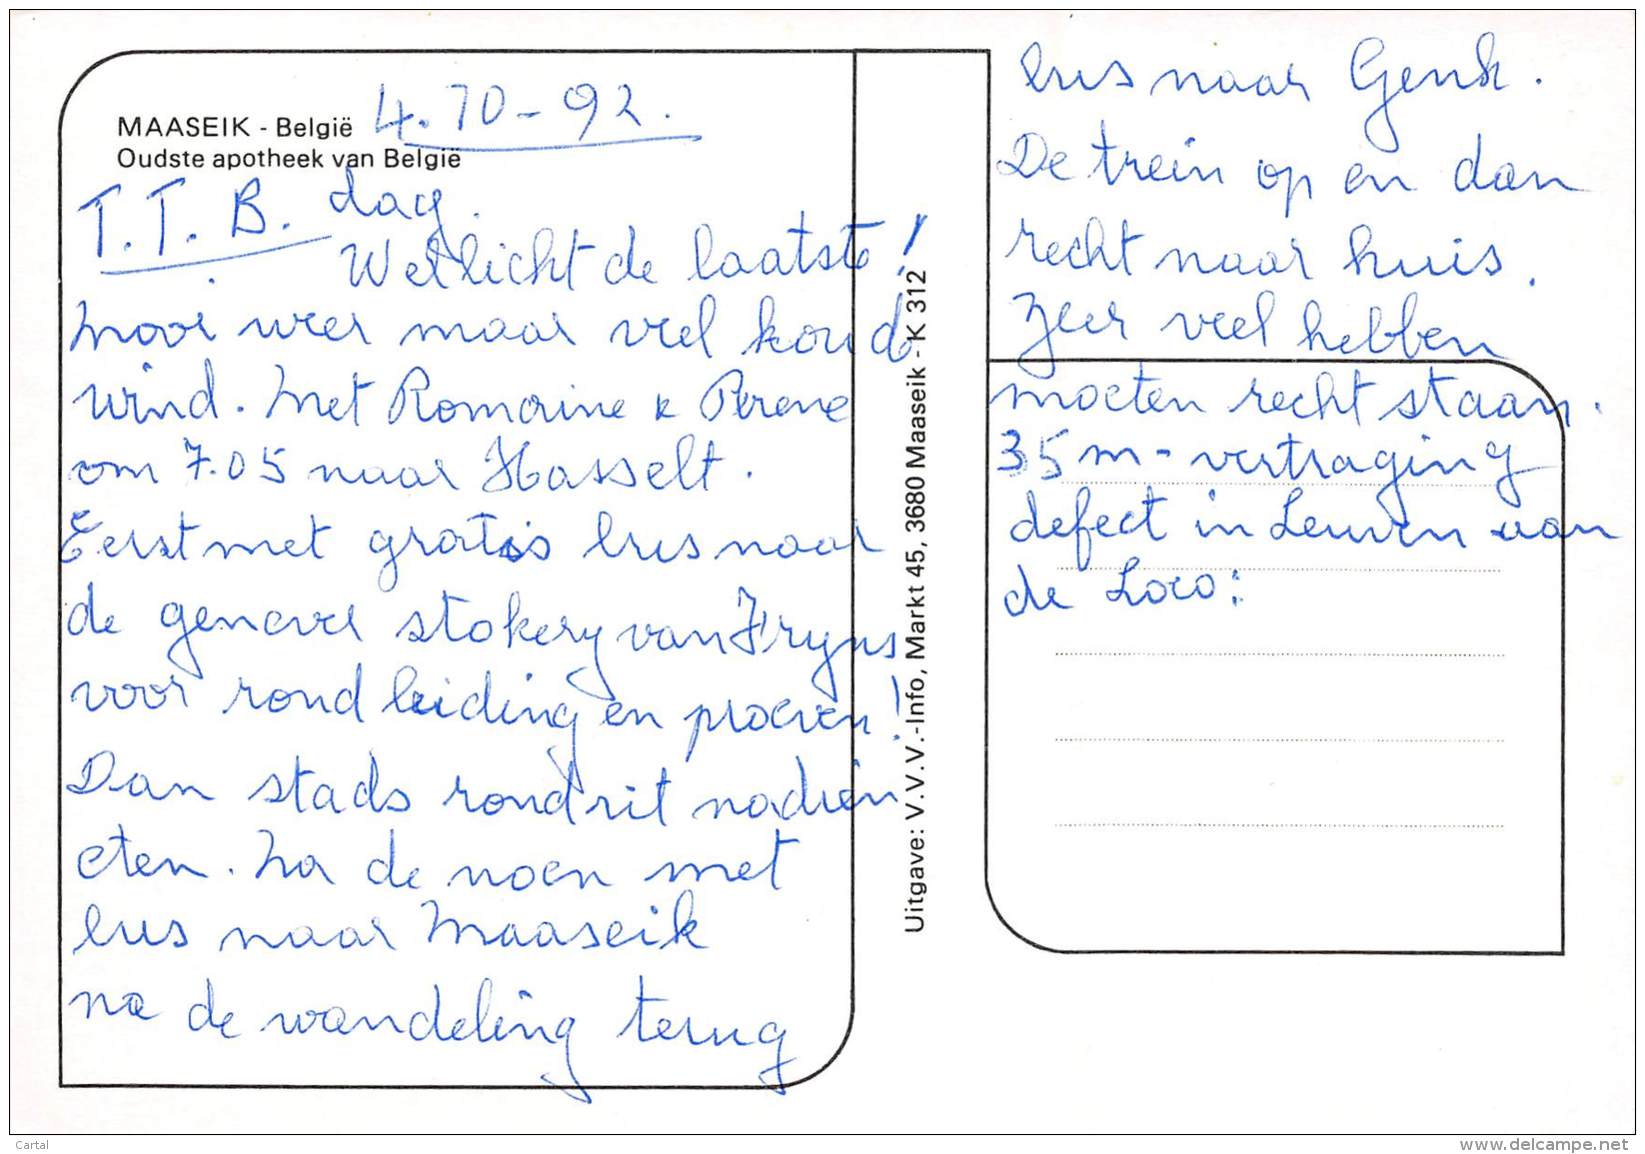 MAASEIK - België
4.10-92.
Oudste apotheek van België
T.T.B. dag.
Wellicht de laatste!
Mooi weer maar veel koud
wind. Met Romaine & Perene
om 7.05 naar Hasselt.
Eerst met gratis bus naar
de genever stokery van Fryns
voor rondleiding en proeven!
Dan stads rondrit nadien
eten. Na de noen met
bus naar Maaseik
na de wandeling terug
Uitgave: V.V.V.-Info, Markt 45, 3680 Maaseik - K 312
bus naar Genk.
De trein op en dan
recht naar huis.
Zeer veel hebben
moeten recht staan.
35 m - vertraging
defect in Leuven van
de Loco:
Cartal
www.delcampe.net